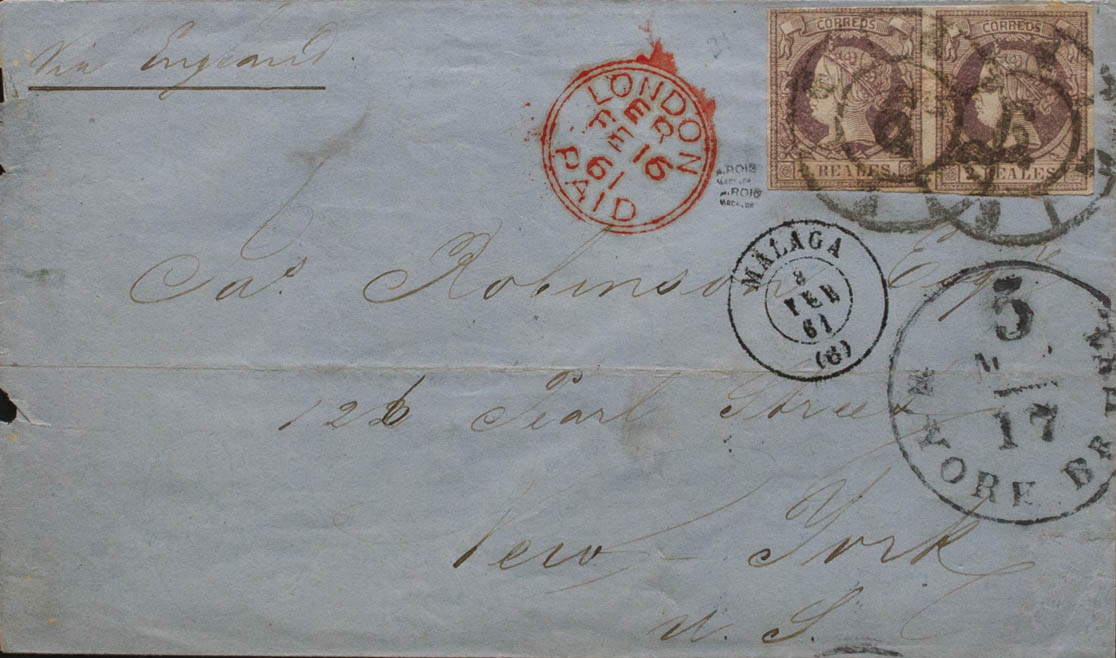 Via England.
CORREOS
CORREOS
2 REALES
2 REALES
LONDON
FE 16
61
PAID
A.ROIG
A.ROIG
MALAGA
8
FEB
61
(6)
Robinson Esqre
5
17
N. YORK BR
126 Pearl Street
New York
U. S.